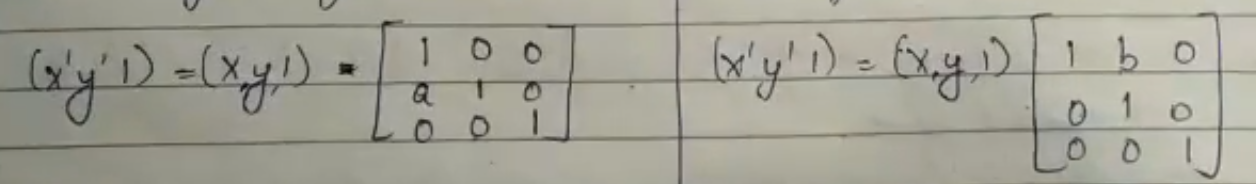 (x'y' 1) = (x,y,1) = [1 0 0
a 1 0
0 0 1]
(x'y' 1) = (x,y,1) [1 b 0
0 1 0
0 0 1]